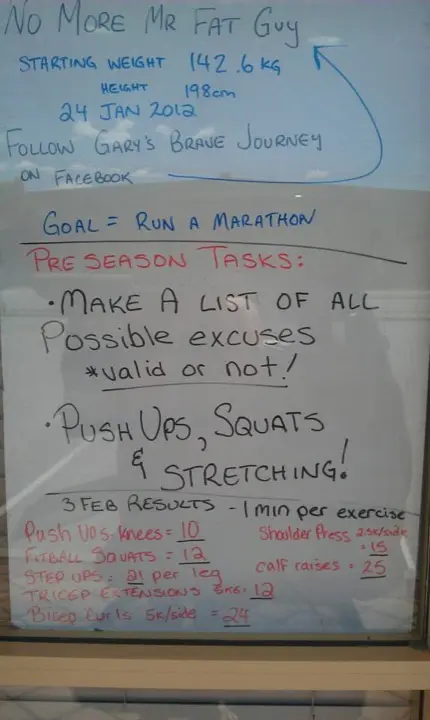 NO MORE MR FAT GUY
STARTING WEIGHT 142.6 KG
HEIGHT 198cm
24 JAN 2012
FOLLOW GARY'S BRAVE JOURNEY
ON FACEBOOK
GOAL = RUN A MARATHON
PRE SEASON TASKS:
• MAKE A LIST OF ALL
Possible excuses
*valid or not!
• PUSH UPS, SQUATS
& STRETCHING!
3 FEB RESULTS - 1 min per exercise
Push Ups-knees = 10
Shoulder Press 2.5K/side
= 15
FITBALL SQUATS = 12
STEP UPS = 21 per leg
calf raises = 25
TRICEP EXTENSIONS = 12
Bicep Curls 5K/side = 24